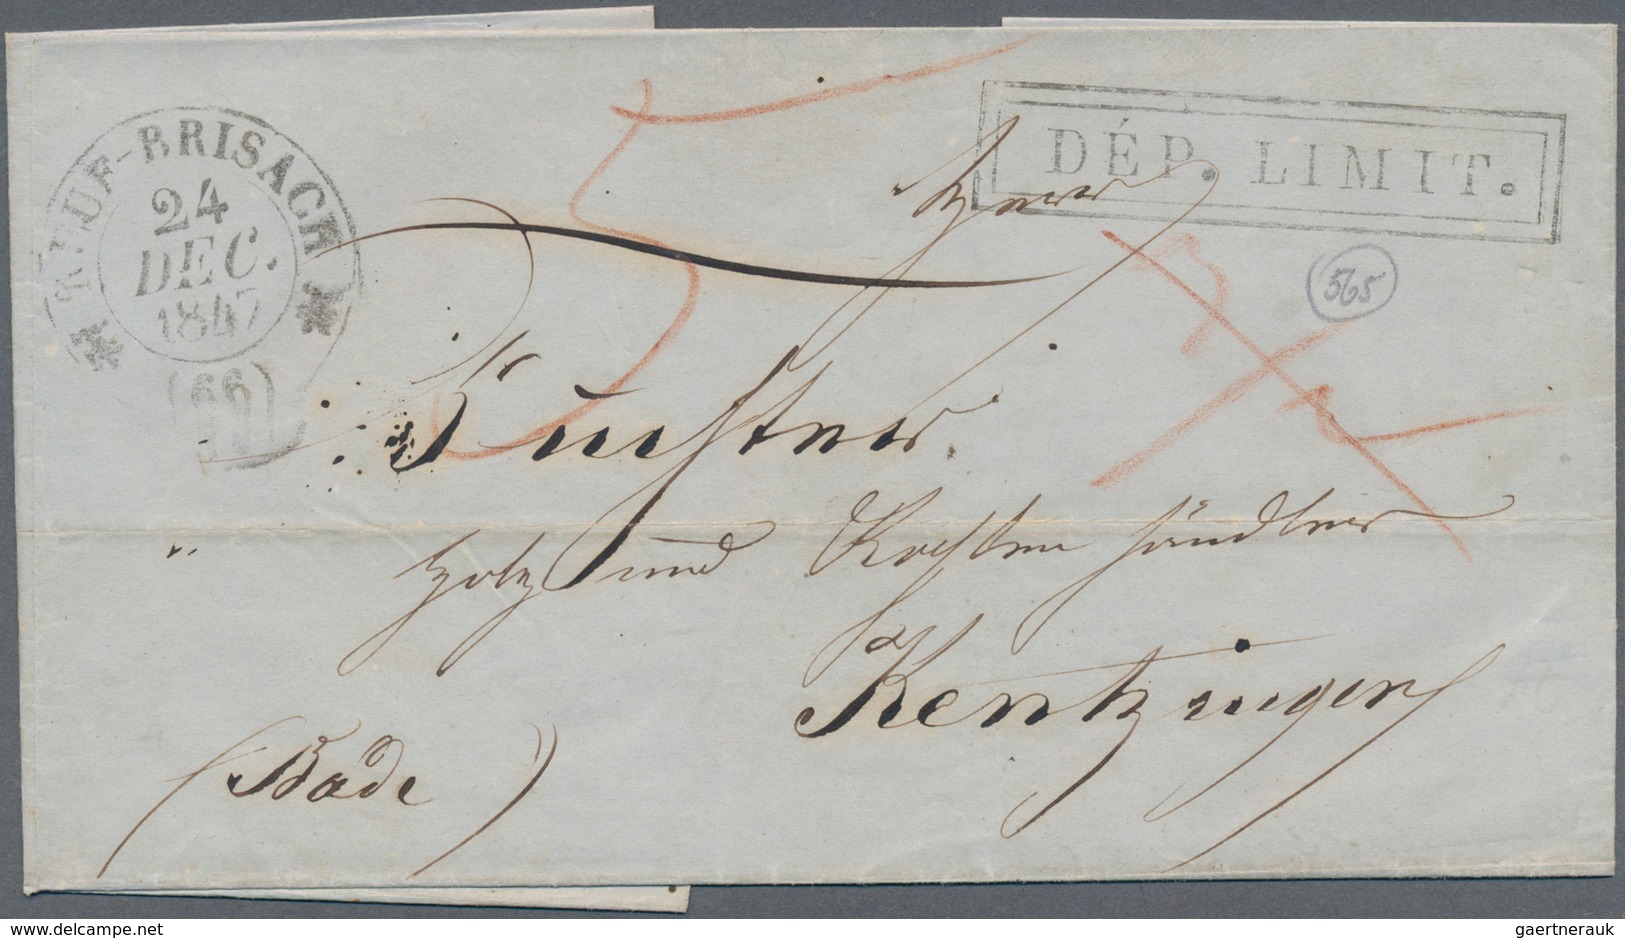 NEUF-BRISACH
24
DEC.
1847
(66)
DÉP. LIMIT.
Herrn
565
Kustner
Holz und Kosten händler
Kentzingen
(Bade)
gaertnerauk